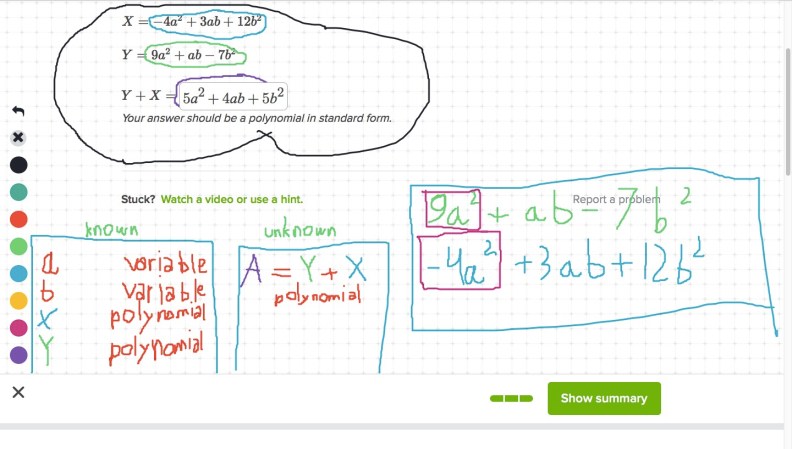 X = −4a² + 3ab + 12b²
Y = 9a² + ab − 7b²
Y + X = 5a² + 4ab + 5b²
Your answer should be a polynomial in standard form.
Stuck? Watch a video or use a hint.
Report a problem
known
a variable
b variable
X polynomial
Y polynomial
unknown
A = Y + X
polynomial
9a² + ab − 7b²
-4a² + 3ab + 12b²
Show summary